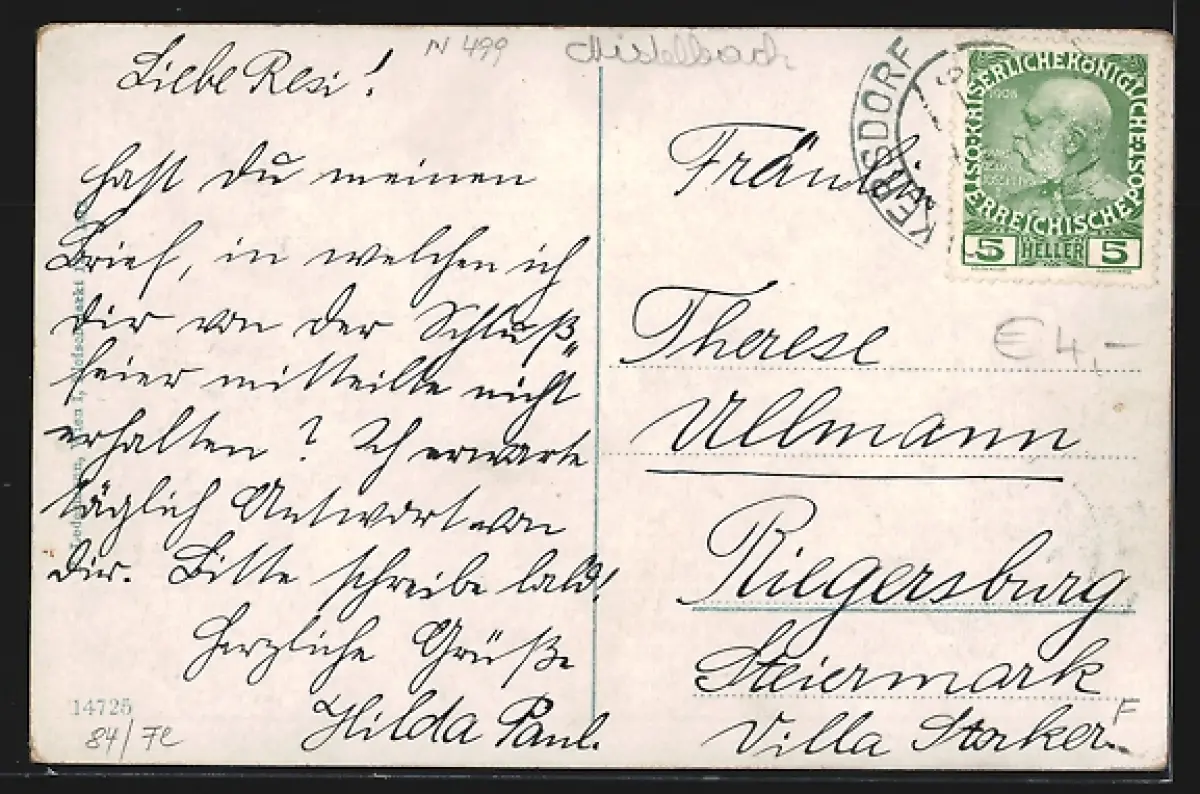 N 499
Mistelbach
Liebe Resi!
Hast du meinen
Brief, in welchen ich
dir von der Schluß„
feier mitteilte nicht
erhalten? Ich erwarte
täglich Antwort von
dir. Bitte schreibe bald!
Herzliche Grüße
Hilda Paul.
14725
84/7e
KERSDORF
KAISERLICHE KÖNIGLICHE ÖSTERREICHISCHE POST
1908
5 HELLER 5
Fräulein
€ 4,-
Therese
Ullmann
Riegersburg
Steiermark
F
Villa Storker.